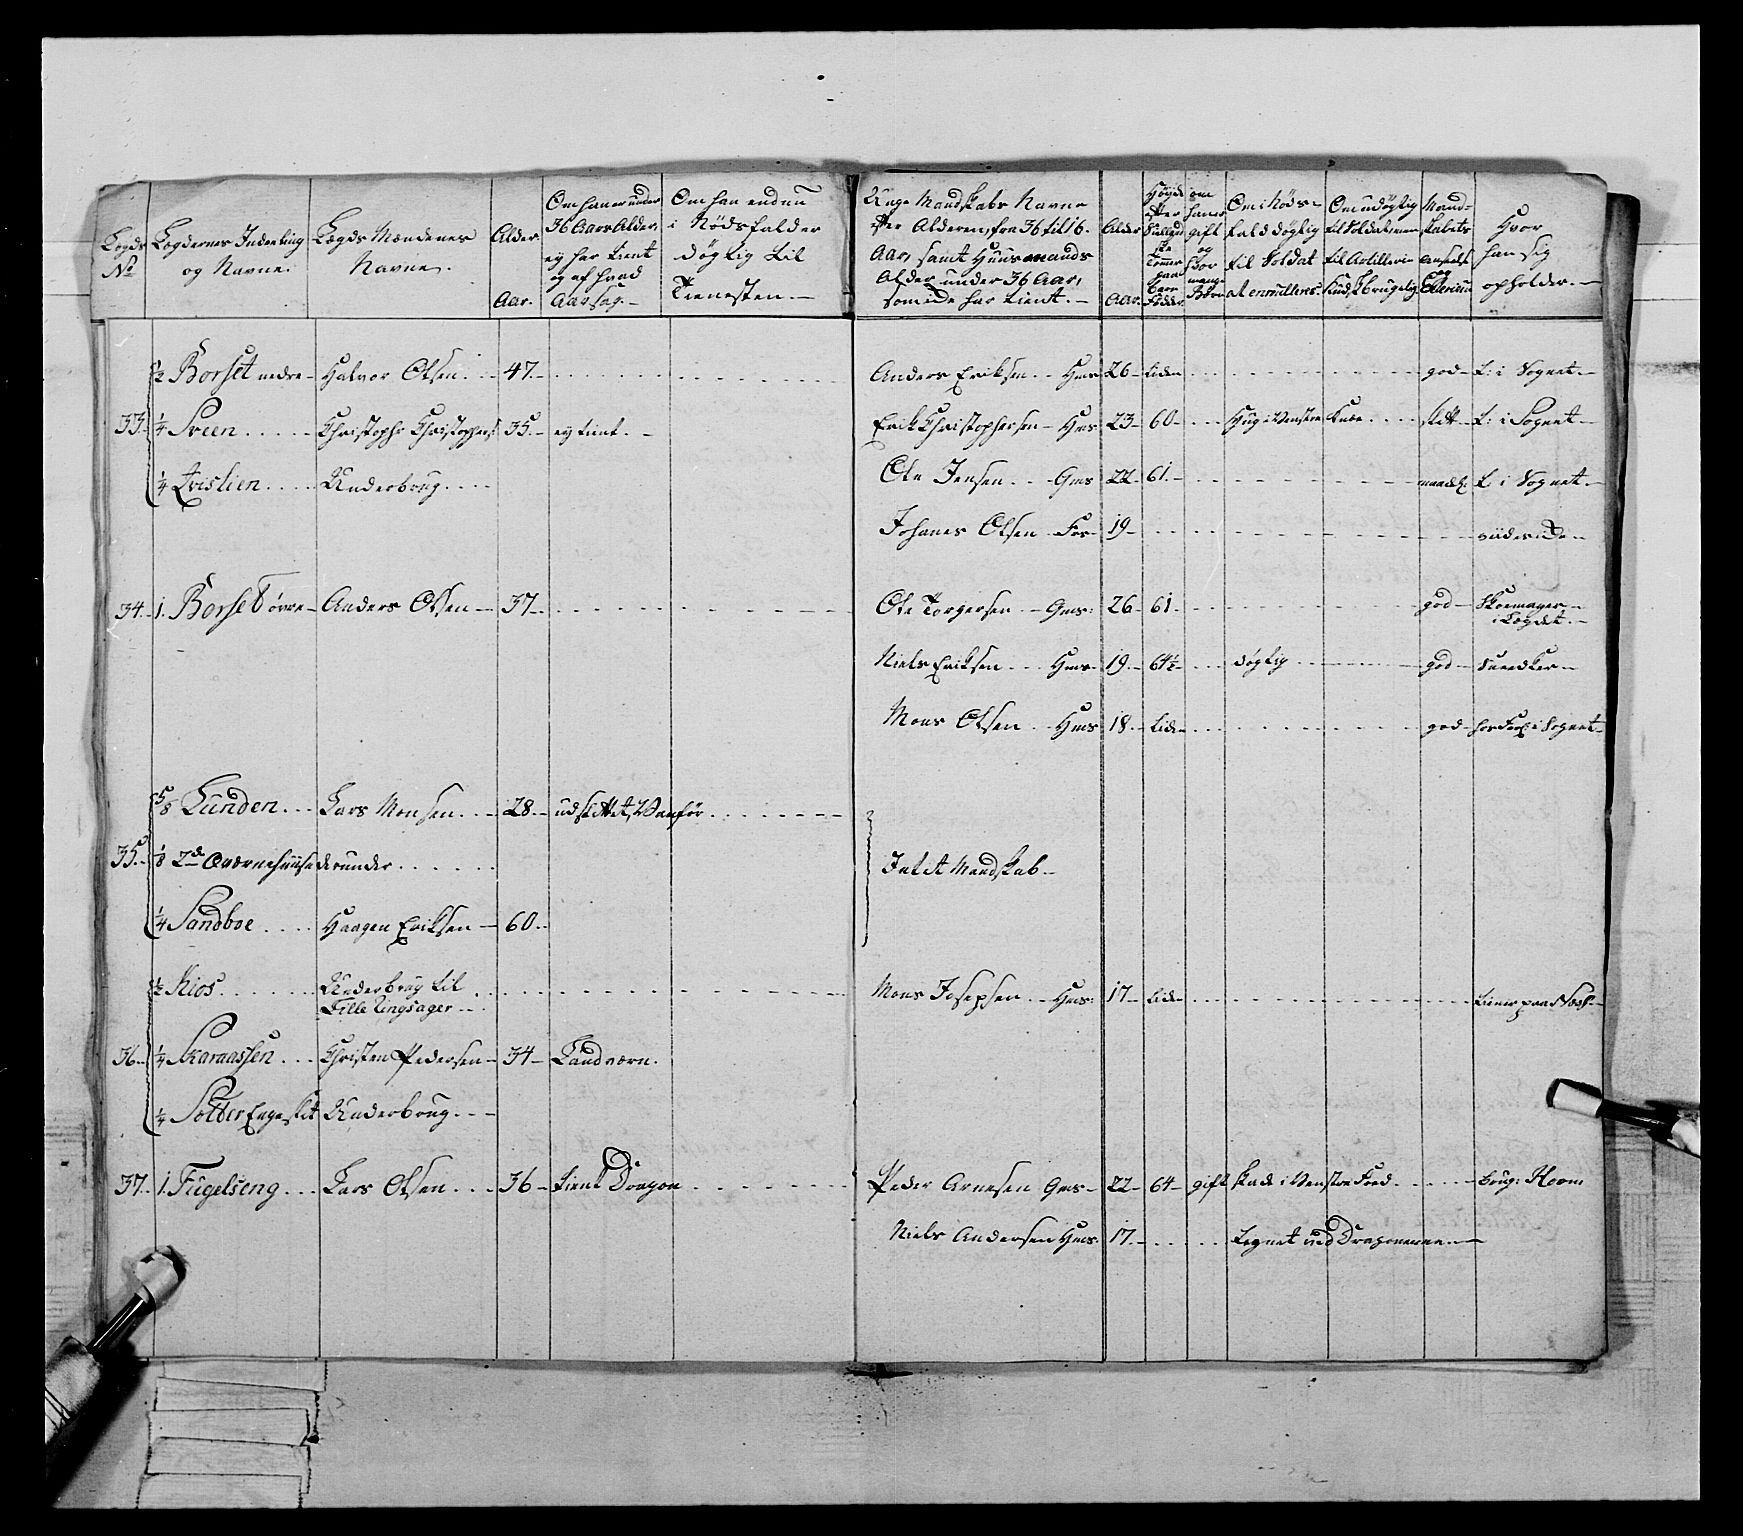 Lægds No
Lægdernes Inddeeling og Navne.
Lægds Mændenes Navne.
Alder Aar.
Om han er under 36 Aars Alder, ey har tient og af hvad Aarsag.
Om han endnu i Nødsfalder døgtig til Tienesten.
Unge Mandskabs Navne efter Alderen, fra 36 til 16 Aar, samt Huusmænds Alder under 36 Aar, som ide har tient.
Alder Aar.
Om han er gift og hvor mange Børn
Om i Nødsfald døgtig til Soldat at enrulleres.
Om udøgtig til Soldat, men til Artillerie Kudsk brugelig
Mandskabets Anseelse og
Hvor han sig opholder.
33. ½ Borset nedre Halvor Olsen 47. Anders Eriksen Hms 26 liden god i Sognet
¼ Sveen Christopher Christophers: 35 ey tient. Erik Christophersen Hms 23 60 i Venstre Knæ slett i Sognet
¼ Qvislien Underbrug Ole Jensen Gms 22 61. maadel: i Sognet
Johanes Olsen For 19
34. 1. Borset øvre Anders Olsen 37. Ole Torgersen Gms: 26 61 god Skoemager i Lægdet.
Niels Eriksen Hms 19 64½ døgtig god Snedker
Mons Olsen Hms 18 liden god i Sognet
35. ⅝ Lunden Lars Monsen 28 udslettet, Vanfør
⅛ 2de Qværnehuuse derunder Intet Mandskab
¼ Sandboe Haagen Eriksen 60
½ Kios Underbrug til Lille Ringsager Mons Josepsen Hms: 17 liden tiener paa
36. ¼ Skaraassen Christen Pedersen 34 Landværn.
¼ Solber Engeslet Underbrug
37. 1. Fugelseng Lars Olsen 36 tient Dragon Peder Arnesen Gms 22 64 gift skade i Venstre Brug:
Niels Andersen Hms 17. Tegnet ved Dragonerne